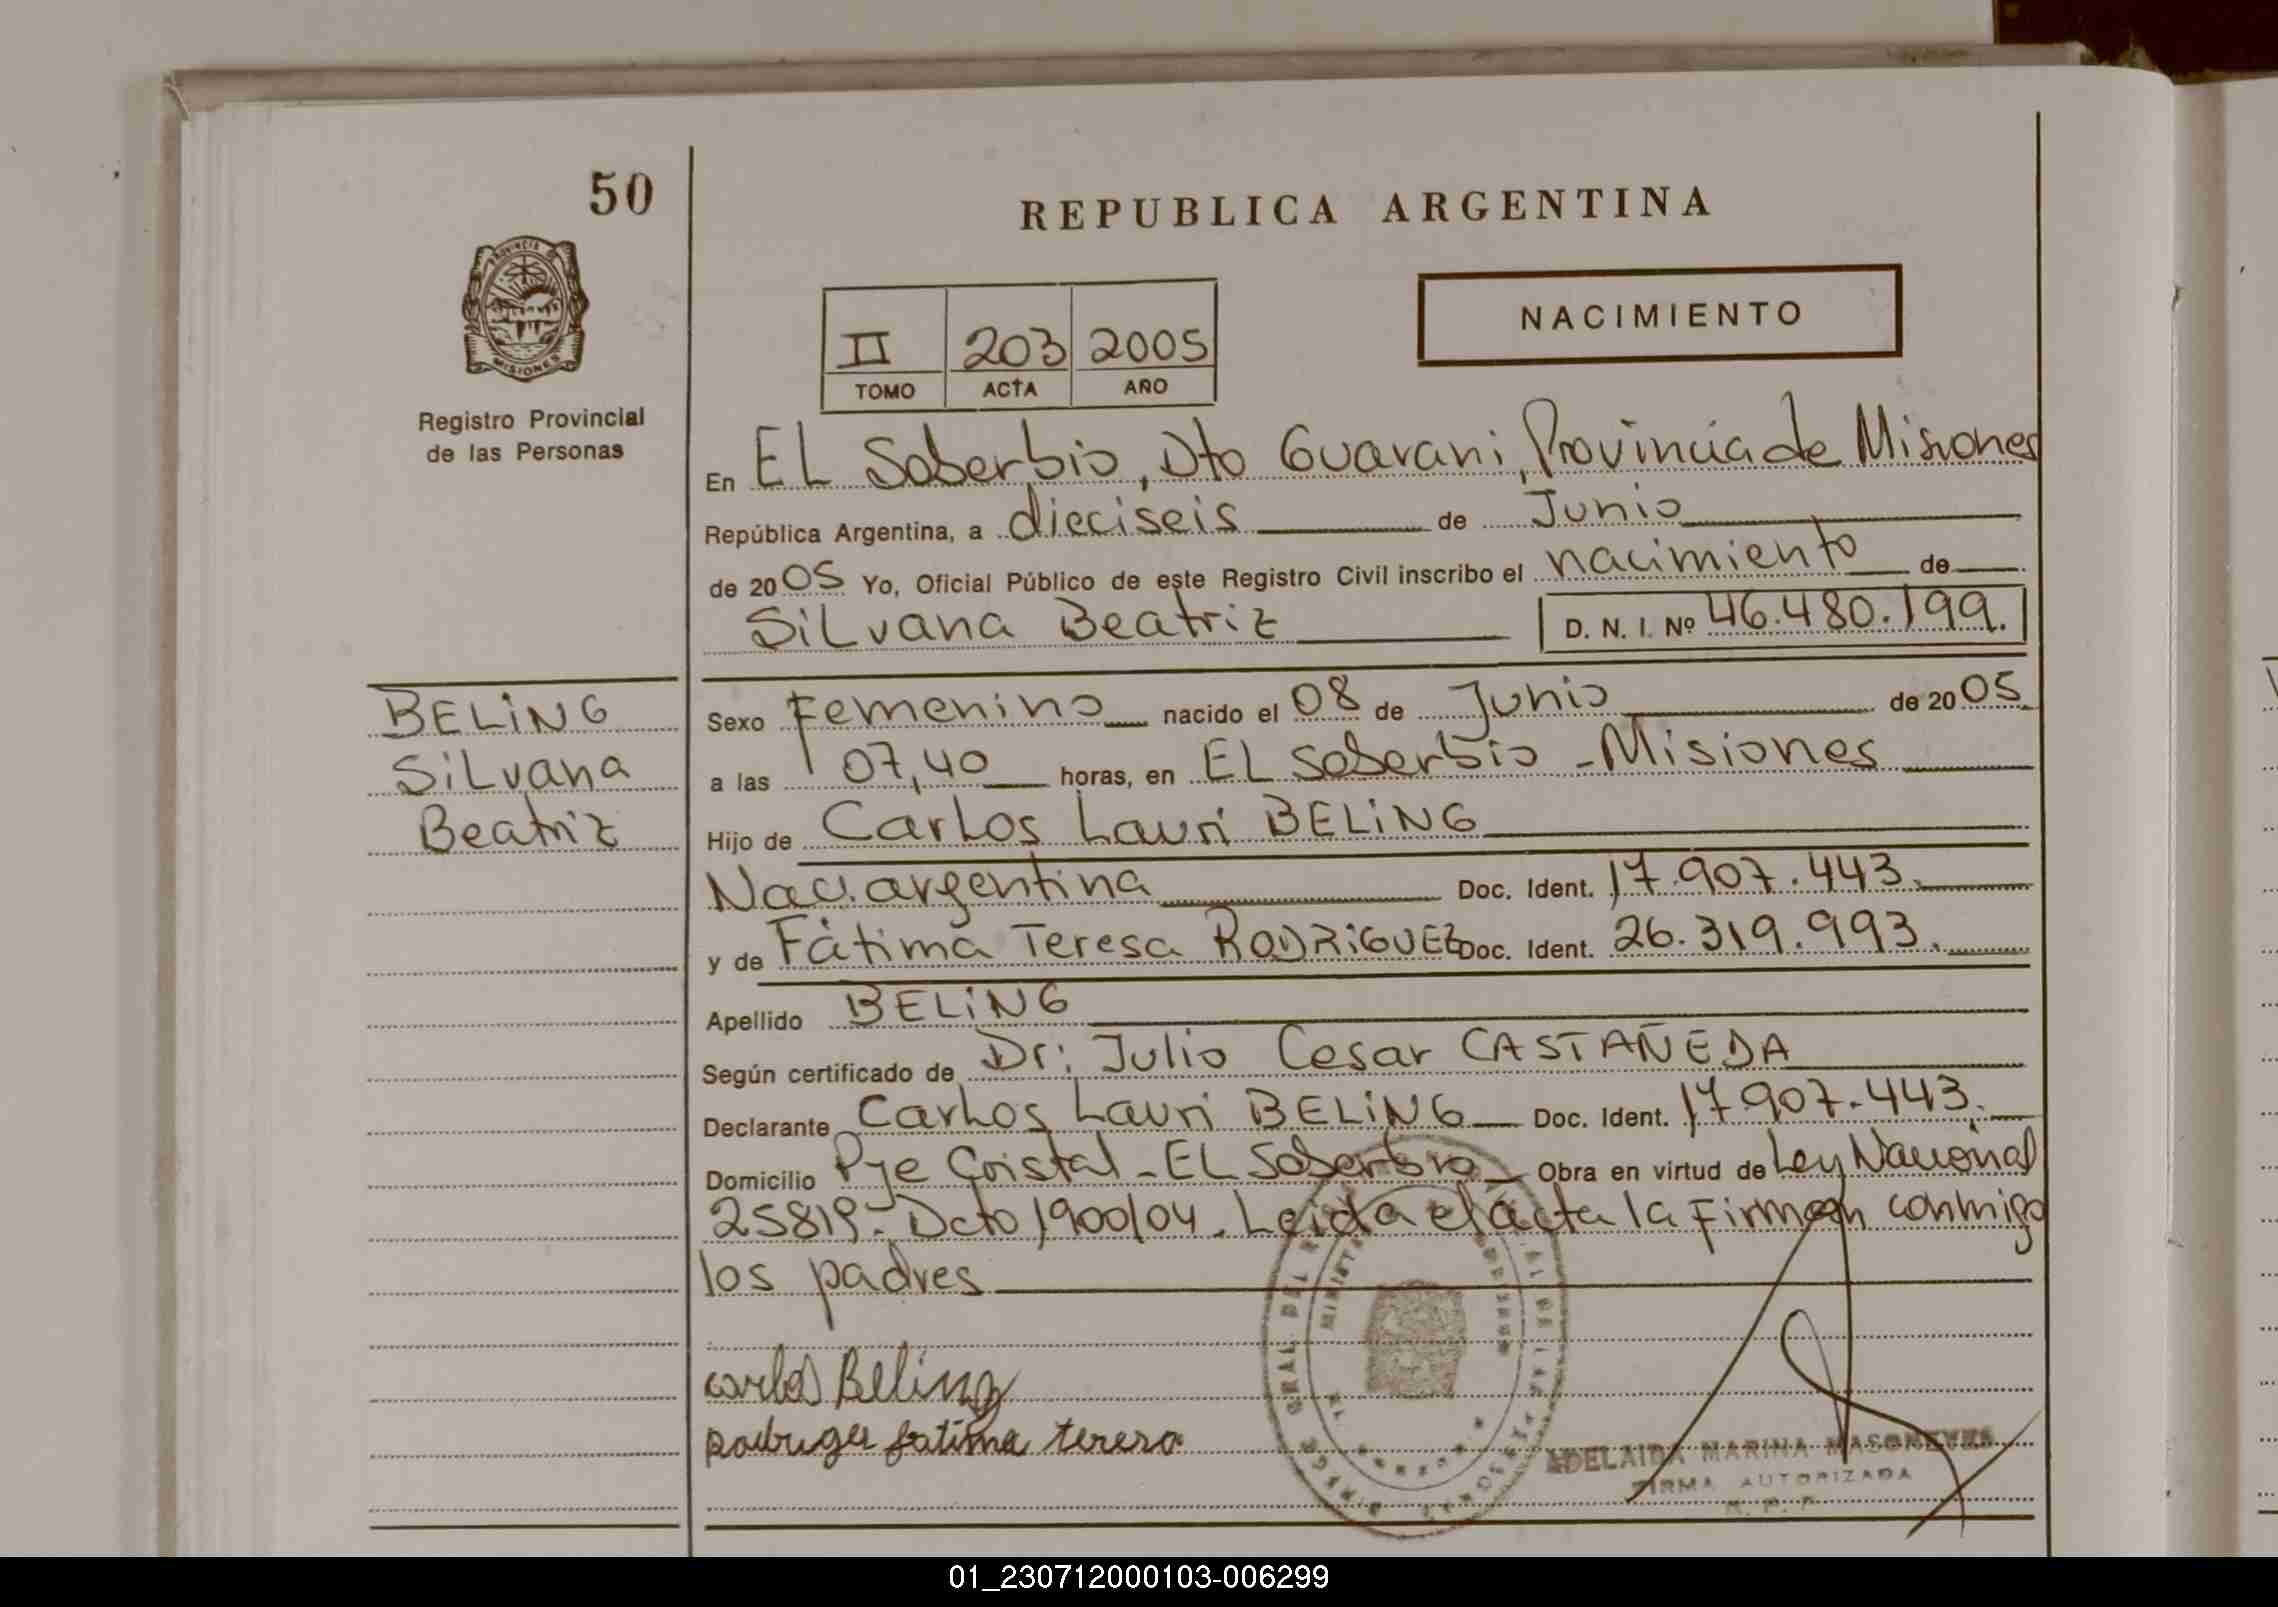 50
REPUBLICA ARGENTINA
PROVINCIA DE
MISIONES
Registro Provincial
de las Personas
NACIMIENTO
II 203 2005
TOMO ACTA AÑO
En EL Soberbio, Dto Guarani, Provincia de Misiones
República Argentina, a dieciseis de Junio
de 2005 Yo, Oficial Público de este Registro Civil inscribo el nacimiento de
SiLvana Beatriz D. N. I. Nº 46.480.199.
BELiNG
SiLvana
Beatriz
Sexo Femenino nacido el 08 de Junio de 2005
a las 07,40 horas, en EL Soberbio - Misiones
Hijo de CarLos Lauri BELiNG
Nac. argentina Doc. Ident. 17.907.443.
y de Fátima Teresa RODRiGUEZ Doc. Ident. 26.319.993.
Apellido BELiNG
Según certificado de Dr: Julio Cesar CASTAÑEDA
Declarante CarLos Lauri BELiNG Doc. Ident. 17.907.443.
Domicilio Pje Cristal - EL Soberbio Obra en virtud de Ley Nacional
25819.- Dcto 1900/04. Leida el acta la Firman conmigo
los padres
carlos Beling
fatima
ADELAIDA MARINA
FIRMA AUTORIZADA
01_230712000103-006299